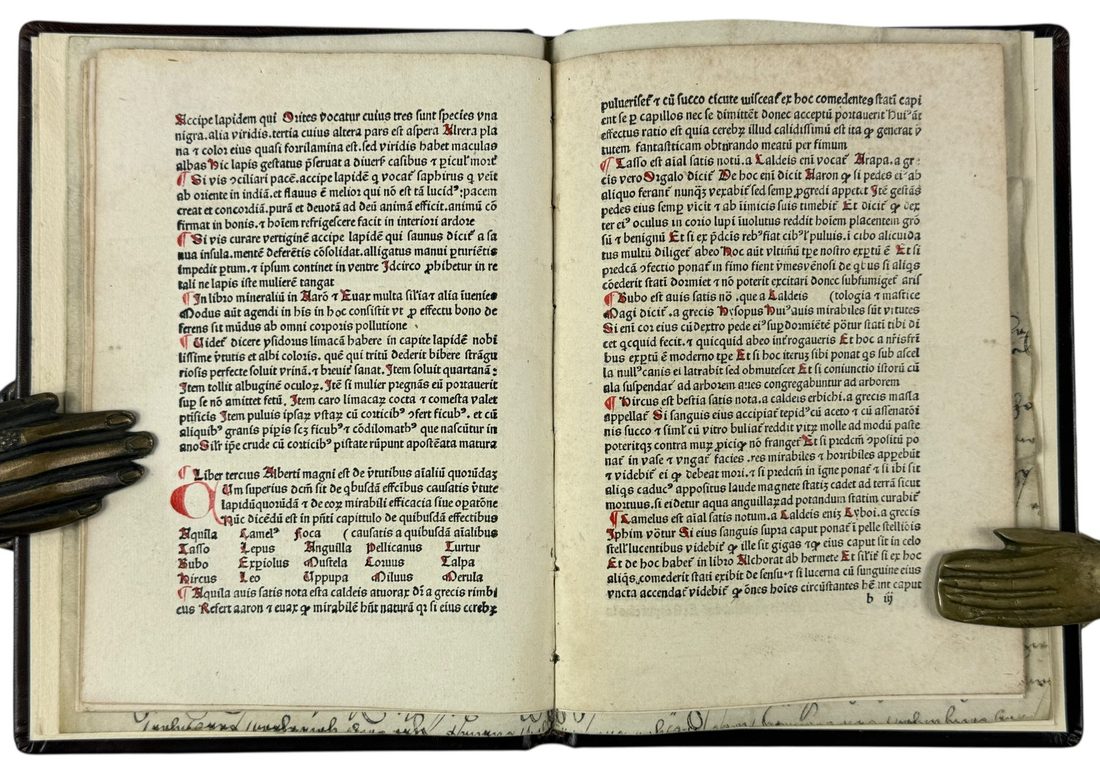 Accipe lapidem qui Orites vocatur cuius tres sunt species vna
nigra.alia viridis.tertia cuius altera pars est aspera Alrera pla
na ⁊ color eius quasi forrilamina est.sed viridis habet maculas
albas Hic lapis gestatus p̄seruat a diuersꝭ casibus ⁊ ꝑicul' mort'
¶ Si vis ↄciliari pacē.accipe lapidē q̄ vocat̄ saphirus q̄ veit
ab oriente in indiā.et flauus ē melior qui nō est tā lucid⁹:pacem
creat et concordiā.purā et deuotā ad deū animā efficit.animū cō
firmat in bonis.⁊ hoīem refrigescere facit in interiori ardore
¶ Si vis curare vertiginē accipe lapidē qui saunus dicit̄ a sa
nua insula.mentē deferētis cōsolidat.alligatus manui ꝑturiētis
impedit ꝑtum.⁊ ipsum continet in ventre Idcirco ꝓhibetur in re
tali ne lapis iste mulierē tangat
¶ In libro mineraliū in Aarō ⁊ Euax multa sil'ia ⁊ alia īuenies
Modus aūt agendi in his in hoc consistit vt ꝓ effectu bono de
ferens sit mūdus ab omni corporis pollutione
¶ Videt̄ dicere ysidorus limacā habere in capite lapidē nobi
lissime v̄tutis et albi coloris. quē qui tritū dederit bibere strāgu
riosis perfecte soluit vrinā.⁊ breuit̄ sanat.Item soluit quartanā:
Item tollit albuginē oculoꝝ. Itē si mulier pregnās eū portauerit
sup se nō amittet fetū. Item caro limacaꝝ cocta ⁊ comesta valet
ptisicis Item puluis ipsaꝝ vstaꝝ cū corticib⁹ ↄfert ficub⁹. et cū
aliquib⁹ granis pipis scꝫ ficub⁹ ⁊ cōdilomatb⁹ que nascūtur in
ano Silr ip̄e crude cū corticib⁹ pistate rūpunt apostēata matura
¶ Liber tercius Alberti magni est de v̄tutibus aīaliū quorūdaꝫ
Vm superius dcm̄ sit de q̄busdā effcībus causatis v̄tute
lapidū quorūdā ⁊ de eoꝝ mirabili efficacia siue opatōne
Nūc dicēdū est in pn̄ti capittulo de quibusdā effectibus
Aquila Camel⁹ Foca ( causatis a quibusdā aīalibus
Tasso Lepus Anguilla Pellicanus Turtur
Bubo Expiolus Mustela Coruus Talpa
Hircus Leo Vppupa Miluus Merula
¶ Aquila auis satis nota est a caldeis atuoraꝝ dr̄ a grecis rimbi
cus Refert aaron ⁊ euax ꝙ mirabilē hn̄t naturā qꝛ si eius cerebꝝ
puluerisef̄ ⁊ cū succo cicute miscea¯ ex hoc comedentes statī capi
ent se ꝑ capillos nec se dimittēt donec acceptū portauerīt Hui⁹ aūt
effectus ratio est quia cerebꝝ illud calidissimū est ita ꝙ generat v̄
tutem fantasticam obturando meatū per fimum
¶ Tasso est aīal satis notū.a Caldeis eni vocat̄ Arapa.a gre
cis vero Orgalo dicit̄ De hoc eni dicit Aaron ꝙ si pedes ei⁹ ab
aliquo ferant̄ nunqꝫ vexabit̄ sed semp ꝓgredi appetit.Itē gestās
pedes eius semp vicit ⁊ ab īimicis suis timebit̄ Et dicit̄ ꝙ dex
ter ei⁹ oculus in corio lupi īuolutus reddit hoīem placentem grō
sū ⁊ benignū Et si ex p̄dcīs reb⁹ fiat cib⁹ l' puluis.ī cibo alicui da
tus multū diliget̄ ab eo Hoc aūt vltimū tꝑe nostro exꝑtū ē Et si
predcā ↄfectio ponat̄ in fimo fient v̄mes venosi de qbus si aliqs
cōederit stati dormiet ⁊ nō poterit excitari donec subfumiget̄ aris
¶ Bubo est auis satis nō .que a Caldeis (tologia ⁊ mastice
Magi dicit̄.a grecis Hysopus Hui⁹ auis mirabiles sūt v̄tutes
Si eni cor eius cū dextro pede ei⁹ sup dormiētē pōtur stati tibi di
cet qcquid fecit.⁊ quicquid ab eo īterrogaueris Et hoc a nr̄is fri
bus exꝑtū ē moderno tꝑe Et si hoc iteruꝫ sibi ponat̄ qs sub ascel
la null⁹ canis ei latrabit sed obmutescet Et si coniunctio istorū cū
ala suspendat̄ ad arborem aues congregabuntur ad arborem
¶ Hircus est bestia satis nota.a caldeis erbichi.a grecis massa
appellat̄ Si sanguis eius accipiat̄ tepid⁹ cū aceto ⁊ cū assenatōi
nis succo ⁊ siml' cū vitro buliat̄ reddit vitꝝ molle ad modū paste
poteritqꝫ contra muꝝ ꝓiciqꝫ nō franget̄ Et si predcm̄ ↄpositū po
nat̄ in vase ⁊ vngat̄ facies.res mirabiles ⁊ horribiles apꝑebūt
⁊ videbit̄ ei ꝙ debeat mori.⁊ si predcm̄ in igne ponat̄ ⁊ si ibi sit
aliqs caduc⁹ appositus laude magnete statiꝫ cadet ad terrā sicut
mortuus.si ei detur aqua anguillaꝝ ad potandum statim curabit̄
¶ Camelus est aīal satis notum.a Caldeis eniꝫ Cyboi.a grecis
Iphim vōtur Si eius sanguis supra caput ponat̄ ī pelle stelliōis
stell' lucentibus videbit̄ ꝙ ille sit gigas ⁊ ꝙ eius caput sit in celo
Et de hoc habet̄ in libro Alchorat ab hermete Et sil'it̄ si ex hoc
aliqs comederit stati exibit de sensu.⁊ si lucerna cū sanguine eius
vncta accendat̄ videbit̄ ꝙ ōnes hoīes circūstantes hēnt caput
b iij